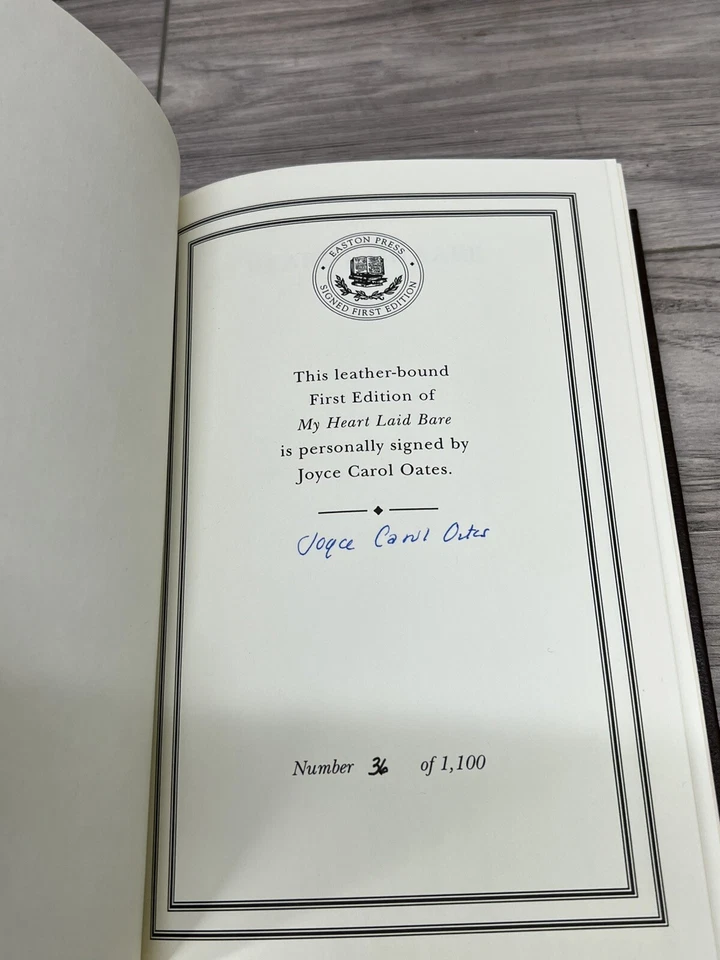 EASTON PRESS
SIGNED FIRST EDITION
This leather-bound
First Edition of
My Heart Laid Bare
is personally signed by
Joyce Carol Oates.
Joyce Carol Oates
Number 36 of 1,100